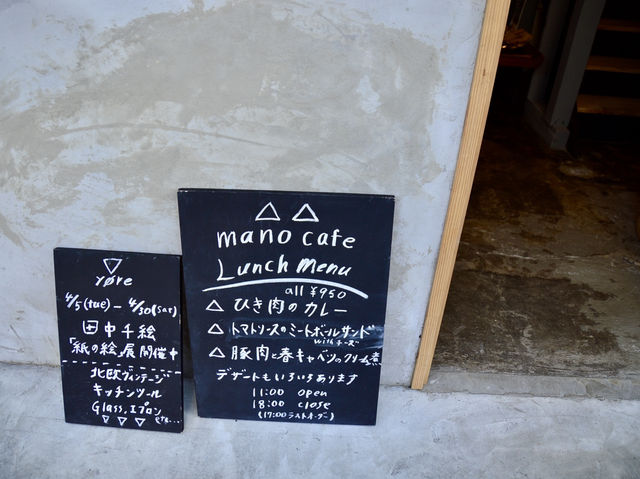 røre
4/5(tue) – 4/30(sat)
田中千絵
「紙の絵」展開催中
北欧ヴィンテージ
キッチンツール
Glass, エプロン
etc...
mano cafe
Lunch menu
all ¥950
△ ひき肉のカレー
△ トマトソースのミートボールサンド
with チーズ
△ 豚肉と春キャベツのクリーム煮
デザートもいろいろあります
11:00 open
18:00 close
(17:00 ラストオーダー)